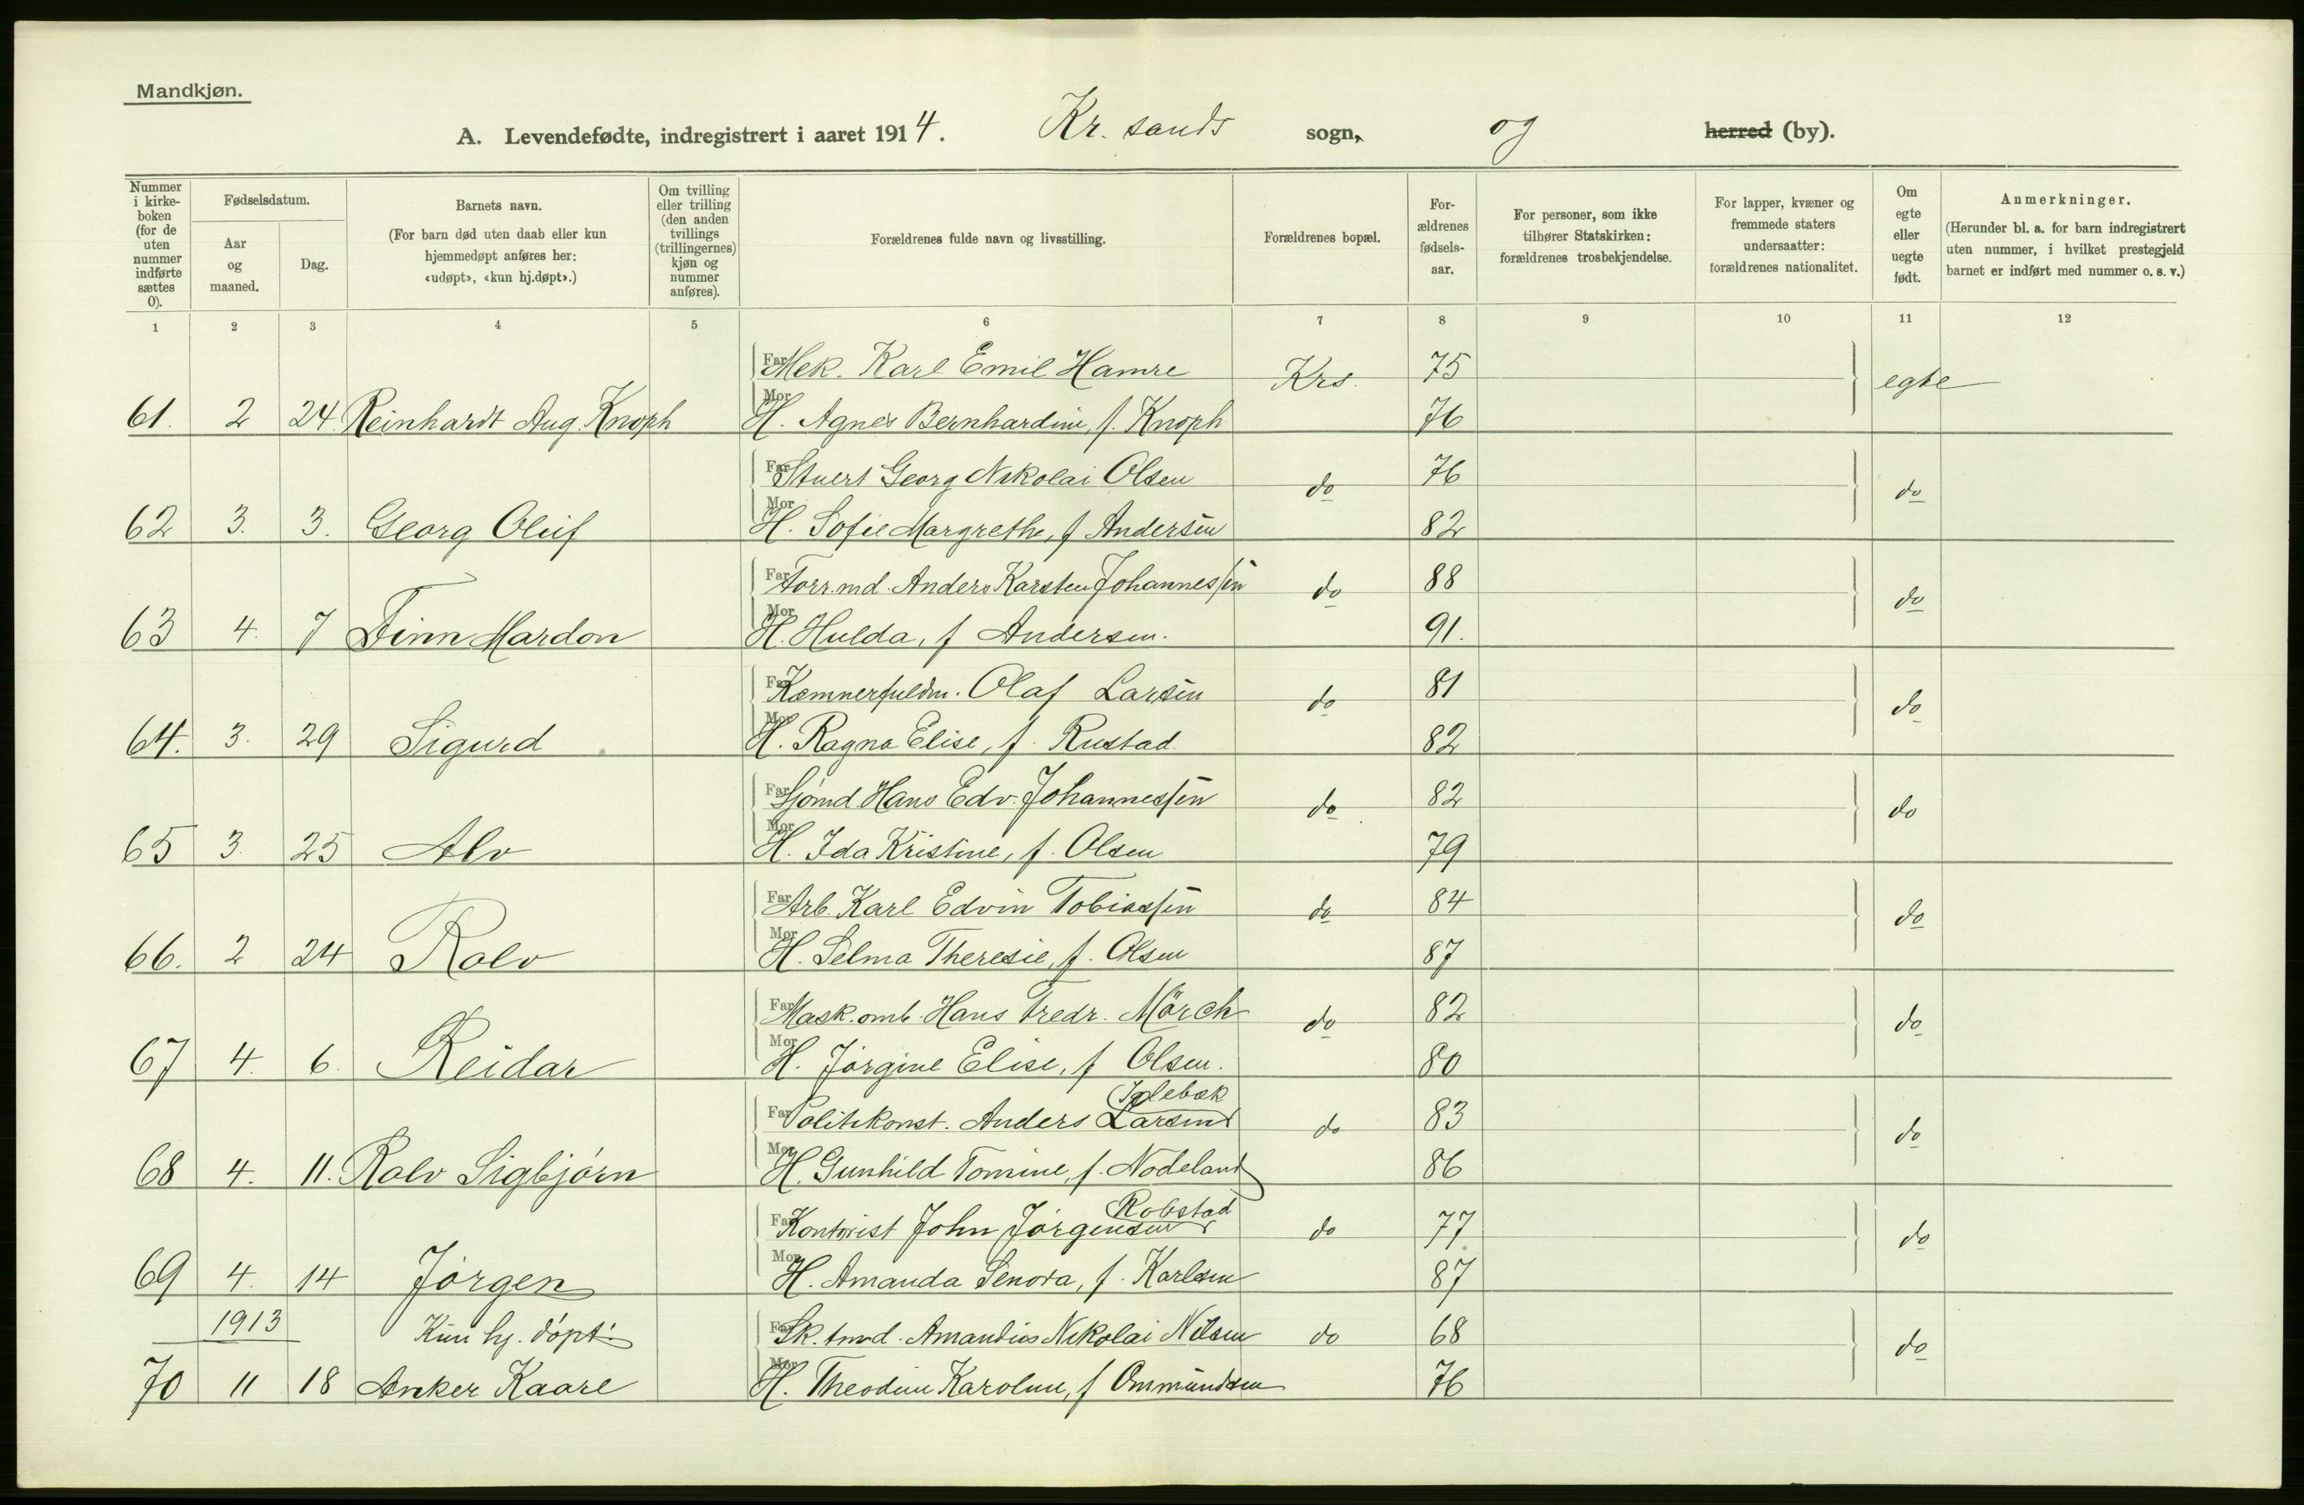 Mandkjøn.
A. Levendefødte, indregistrert i aaret 1914. Kr. sands sogn, og herred (by).
Nummer i kirke-boken (for de uten nummer indførte sættes 0).
Fødselsdatum.
Aar og maaned.
Dag.
Barnets navn.
(For barn død uten daab eller kun hjemmedøpt anføres her: «udøpt», «kun hj.døpt».)
Om tvilling eller trilling (den anden tvillings (trillingernes) kjøn og nummer anføres).
Forældrenes fulde navn og livsstilling.
Forældrenes bopæl.
For-ældrenes fødsels-aar.
For personer, som ikke tilhører Statskirken: forældrenes trosbekjendelse.
For lapper, kvæner og fremmede staters undersaatter: forældrenes nationalitet.
Om egte eller uegte født.
Anmerkninger.
(Herunder bl. a. for barn indregistrert uten nummer, i hvilket prestegjeld barnet er indført med nummer o. s. v.)
1 2 3 4 5 6 7 8 9 10 11 12
Far Mek. Karl Emil Hamre Krs. 75 egte
61. 2 24 Reinhardt Aug. Knoph Mor H. Agnes Bernhardine, f. Knoph 76
Far Stuert Georg Nikolai Olsen do 76 do
62 3. 3. Georg Oluf Mor H. Sofie Margrethe, f Andersen 82
Far Torr.md. Anders Karsten Johannessen do 88 do
63 4. 7 Finn Mardon Mor H. Hulda, f Andersen. 91.
Far Kæmnerfuldm. Olaf Larsen do 81 do
64. 3. 29 Sigurd Mor H. Ragna Elise, f. Rustad 82
Far Sjømd Hans Edv. Johannessen do 82 do
65 3. 25 Alv Mor H. Ida Kristine, f. Olsen 79
Far Arb. Karl Edvin Tobiassen do 84 do
66. 2 24 Rolv Mor H. Selma Theresie, f. Olsen 87
Far Mask.omb. Hans Fredr. Mörch do 82 do
67 4. 6. Reidar Mor H. Jørgine Elise, f Olsen. 80
Iglebæk
Far Politikonst. Anders Larsen do 83 do
68 4. 11. Rolv Sigbjørn Mor H. Gunhild Tomine, f. Nodeland 86
Robstad
Far Kontorist John Jørgensen do 77 do
69 4. 14 Jørgen Mor H. Amanda Lenora, f. Karlsen 87
1913 Kun hj. døpt: Far Sk.tmd. Amandus Nikolai Nilsen do 68 do
70 11 18 Anker Kaare Mor H. Theodine Karoline, f Ommundsen 76